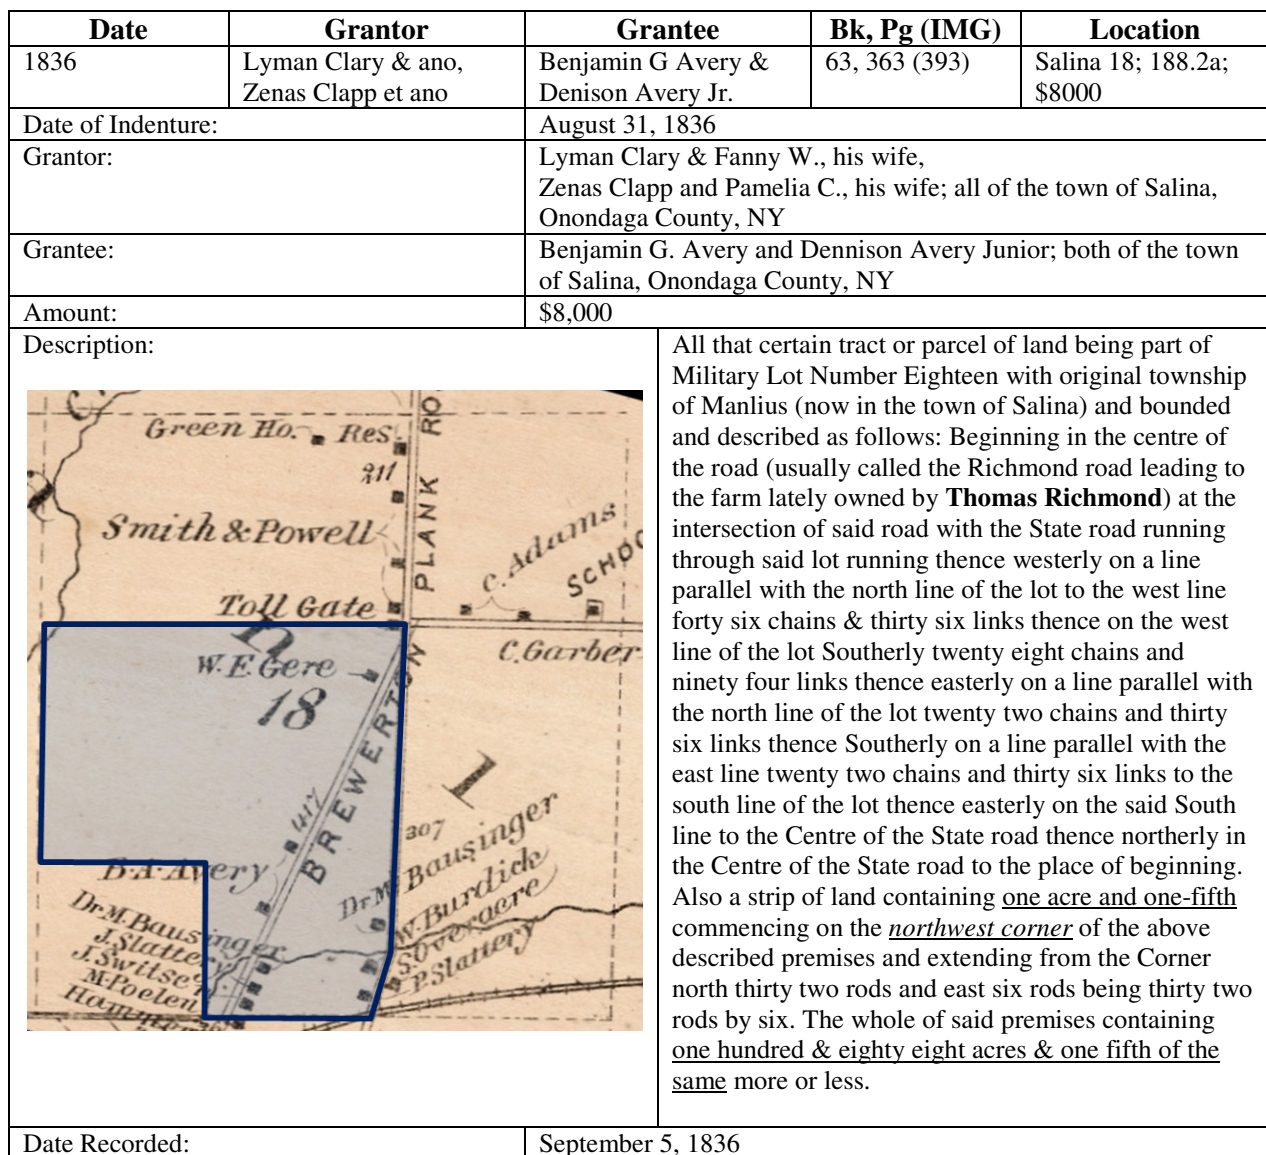 Date Grantor Grantee Bk, Pg (IMG) Location
1836 Lyman Clary & ano, Benjamin G Avery & 63, 363 (393) Salina 18; 188.2a;
Zenas Clapp et ano Denison Avery Jr. $8000
Date of Indenture: August 31, 1836
Grantor: Lyman Clary & Fanny W., his wife,
Zenas Clapp and Pamelia C., his wife; all of the town of Salina,
Onondaga County, NY
Grantee: Benjamin G. Avery and Dennison Avery Junior; both of the town
of Salina, Onondaga County, NY
Amount: $8,000
Description:
Green Ho. Res.
211
Smith & Powell
PLANK RO
C. Adams
SCHOO
Toll Gate
W. E. Gere
C. Garber
18
BREWERTON
417
1
307
B. A. Avery
Dr. M. Bausinger
W. Burdick
S. Overacre
P. Slattery
Dr. M. Bausinger
J. Slattery
J. Switser
M. Poelen
All that certain tract or parcel of land being part of
Military Lot Number Eighteen with original township
of Manlius (now in the town of Salina) and bounded
and described as follows: Beginning in the centre of
the road (usually called the Richmond road leading to
the farm lately owned by Thomas Richmond) at the
intersection of said road with the State road running
through said lot running thence westerly on a line
parallel with the north line of the lot to the west line
forty six chains & thirty six links thence on the west
line of the lot Southerly twenty eight chains and
ninety four links thence easterly on a line parallel with
the north line of the lot twenty two chains and thirty
six links thence Southerly on a line parallel with the
east line twenty two chains and thirty six links to the
south line of the lot thence easterly on the said South
line to the Centre of the State road thence northerly in
the Centre of the State road to the place of beginning.
Also a strip of land containing one acre and one-fifth
commencing on the northwest corner of the above
described premises and extending from the Corner
north thirty two rods and east six rods being thirty two
rods by six. The whole of said premises containing
one hundred & eighty eight acres & one fifth of the
same more or less.
Date Recorded: September 5, 1836